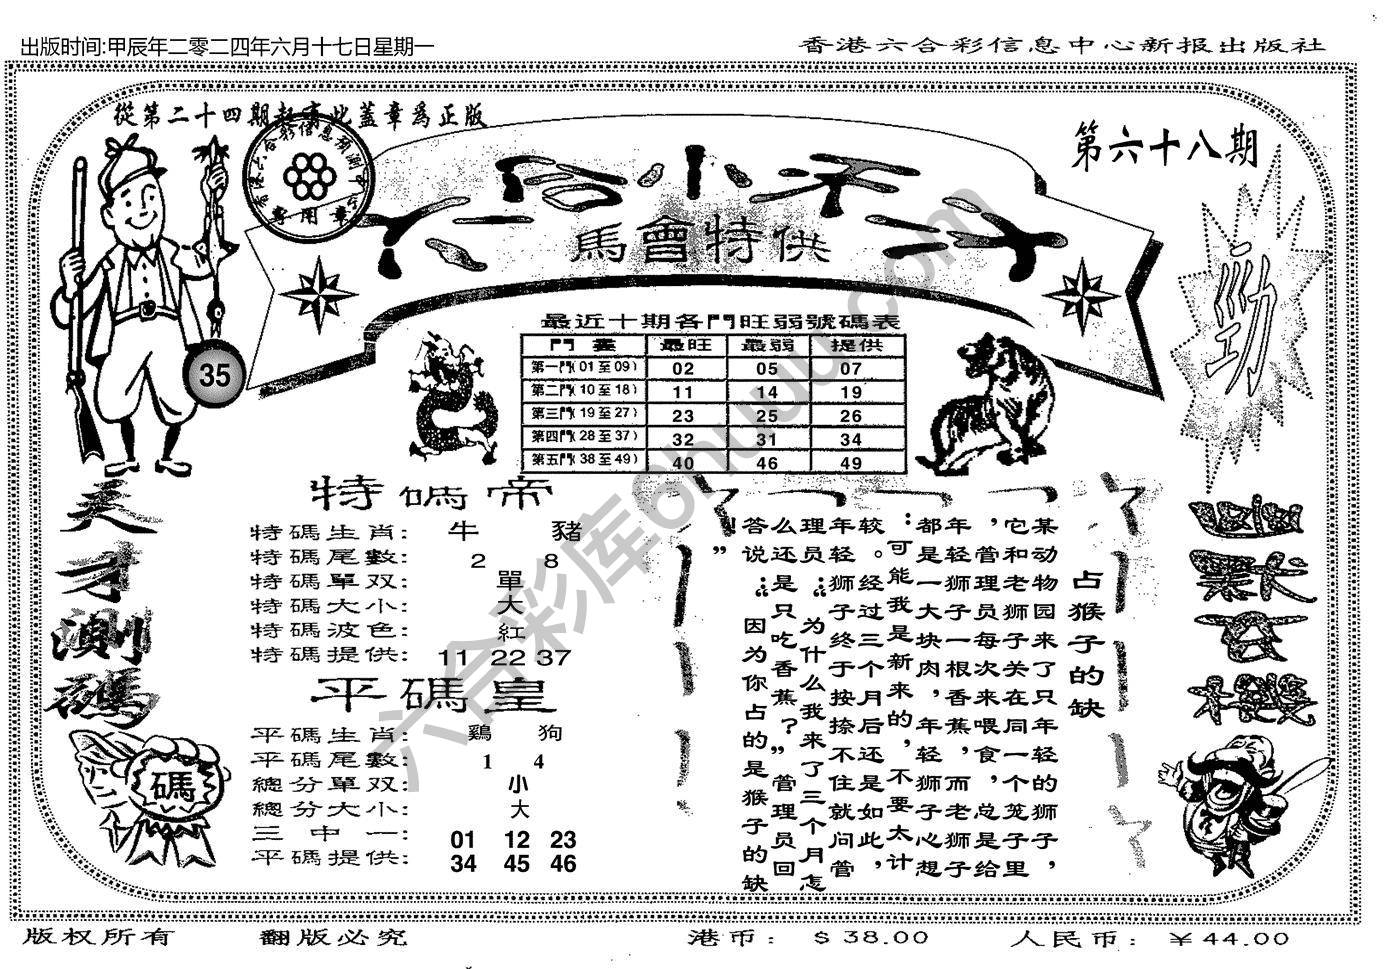 出版时间:甲辰年二零二四年六月十七日星期一
香港六合彩信息中心新报出版社
從第二十四期起有此蓋章爲正版
專用章
第六十八期
六合小天才
馬會特供
勁
35
最近十期各門旺弱號碼表
門 最旺 最弱 提供
第一門(01至09) 02 05 07
第二門(10至18) 11 14 19
第三門(19至27) 23 25 26
第四門(28至37) 32 31 34
第五門(38至49) 40 46 49
天才測碼
碼
特碼帝
特碼生肖: 牛 豬
特碼尾數: 2 8
特碼單双: 單
特碼大小: 大
特碼波色: 紅
特碼提供: 11 22 37
平碼皇
平碼生肖: 鷄 狗
平碼尾數: 1 4
總分單双: 小
總分大小: 大
三中一: 01 12 23
平碼提供: 34 45 46
占猴子的缺
某动物园来了只年轻的狮子，
它和老狮子关在同一个笼子里
，管理员每次来喂食，总是给
年轻狮子一根香蕉，而老狮子
都是一大块肉，年轻狮子心想
：可能我是新来的，不要太计
较。经过三个月后还是如此，
年轻狮子终于按捺不住就问管
理员：“为什么我来了三个月怎
么还是只吃香蕉？”管理员回
答说：“因为你占的是猴子的缺
！”
六合彩库6huuu.com
版权所有
翻版必究
港币: $38.00
人民币: ￥44.00